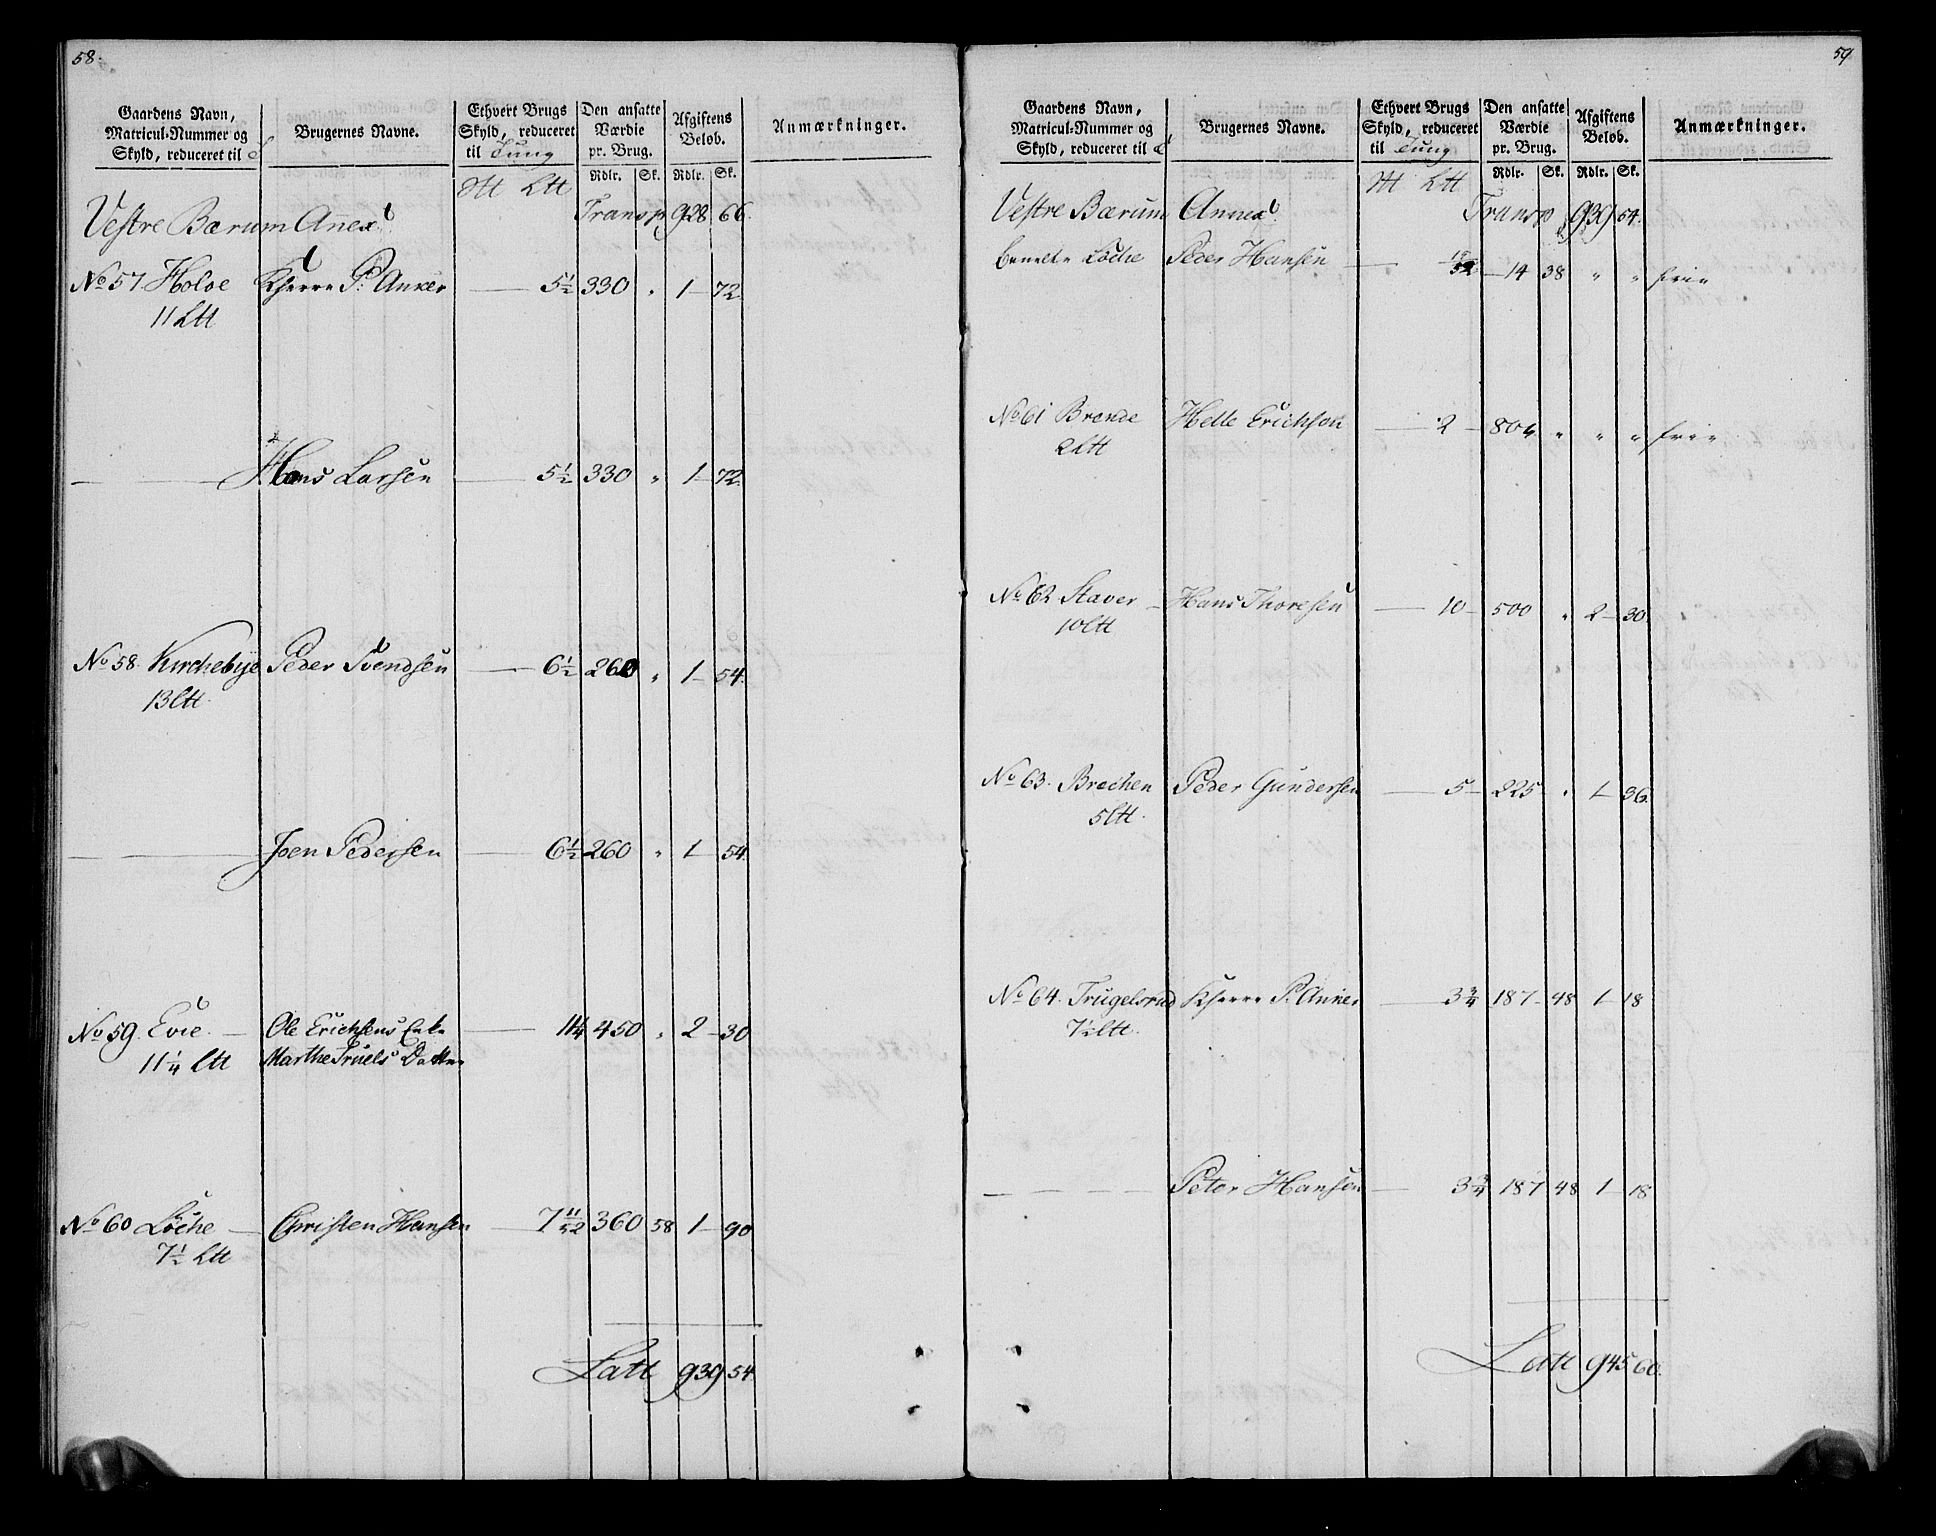 58.
Gaardens Navn, Matricul-Nummer og Skyld, reduceret til
Brugernes Navne.
Ethvert Brugs Skyld, reduceret til Tung
Den ansatte Værdie pr. Brug.
Afgiftens Beløb.
Anmærkninger.
Rdlr. Sk. Rdlr. Sk.
Ltt
Vestre Bærum Annex Transp 928 66.
No 57 Holve P. Anker 5½ 330 " 1 72
11 Ltt
Hans Larsen 5½ 330 " 1 72
No 58. Kirchebye Peder Svendsen 6½ 260 " 1 54.
13 Ltt
Joen Pedersen 6½ 260 " 1 54
No 59. Evie Ole Erichsens Enke 11¼ 450 " 2 30
11¼ Ltt Marthe Truels Datter
No 60 Løche Christen Hansen 7 11/52 360 58 1 90
7½ Ltt
Latt 939 54
59
Gaardens Navn, Matricul-Nummer og Skyld, reduceret til
Brugernes Navne.
Ethvert Brugs Skyld, reduceret til Tung
Den ansatte Værdie pr. Brug.
Afgiftens Beløb.
Anmærkninger.
Rdlr. Sk. Rdlr. Sk.
Ltt
Vestre Bærum Annex Transp 939 54.
Løche Peder Hansen 14 38 " " frie
No 61 Brende Helle Erichsen 2 80 " " " frie
2 Ltt
No 62 Staver Hans Thoresen 10 500 " 2 30
10 Ltt
No 63. Brechen Peder Gundersen 5 225 " 1 36
5 Ltt.
No 64. Trugelsrud P. Anker 3¾ 187 48 1 18
7½ Ltt.
Peter Hansen 3¾ 187 48 1 18
Latt 945 60.